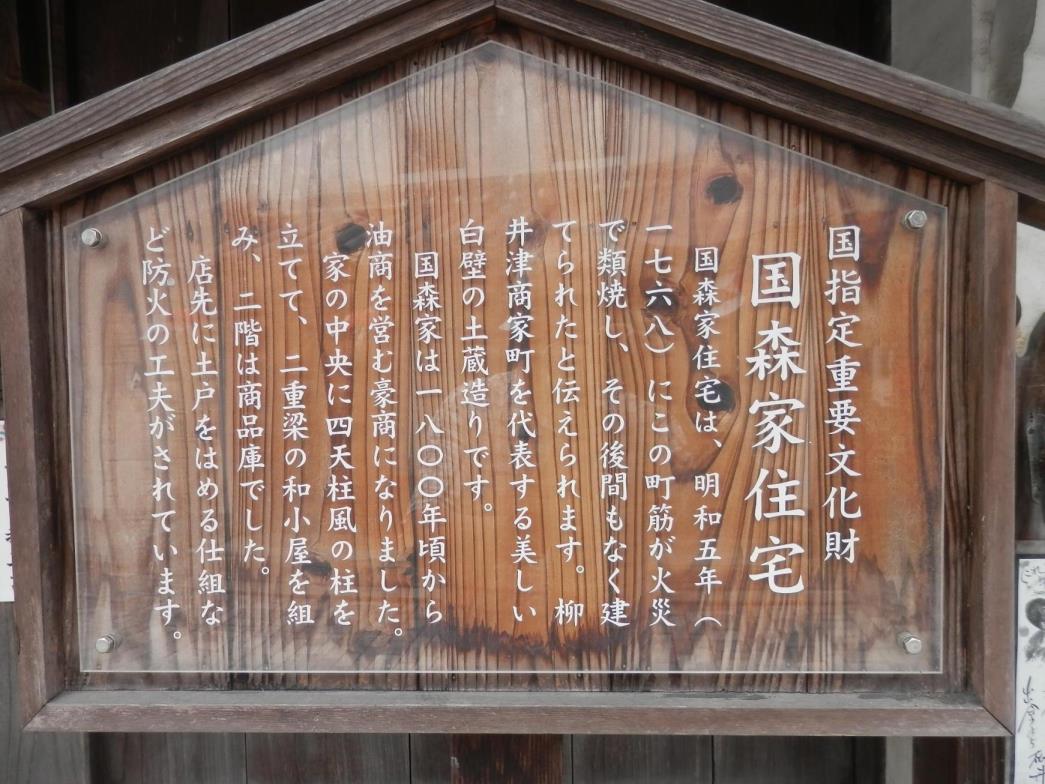 国指定重要文化財
国森家住宅
国森家住宅は、明和五年（
一七六八）にこの町筋が火災
で類焼し、その後間もなく建
てられたと伝えられます。柳
井津商家町を代表する美しい
白壁の土蔵造りです。
国森家は一八〇〇年頃から
油商を営む豪商になりました。
家の中央に四天柱風の柱を
立てて、二重梁の和小屋を組
み、二階は商品庫でした。
店先に土戸をはめる仕組な
ど防火の工夫がされています。